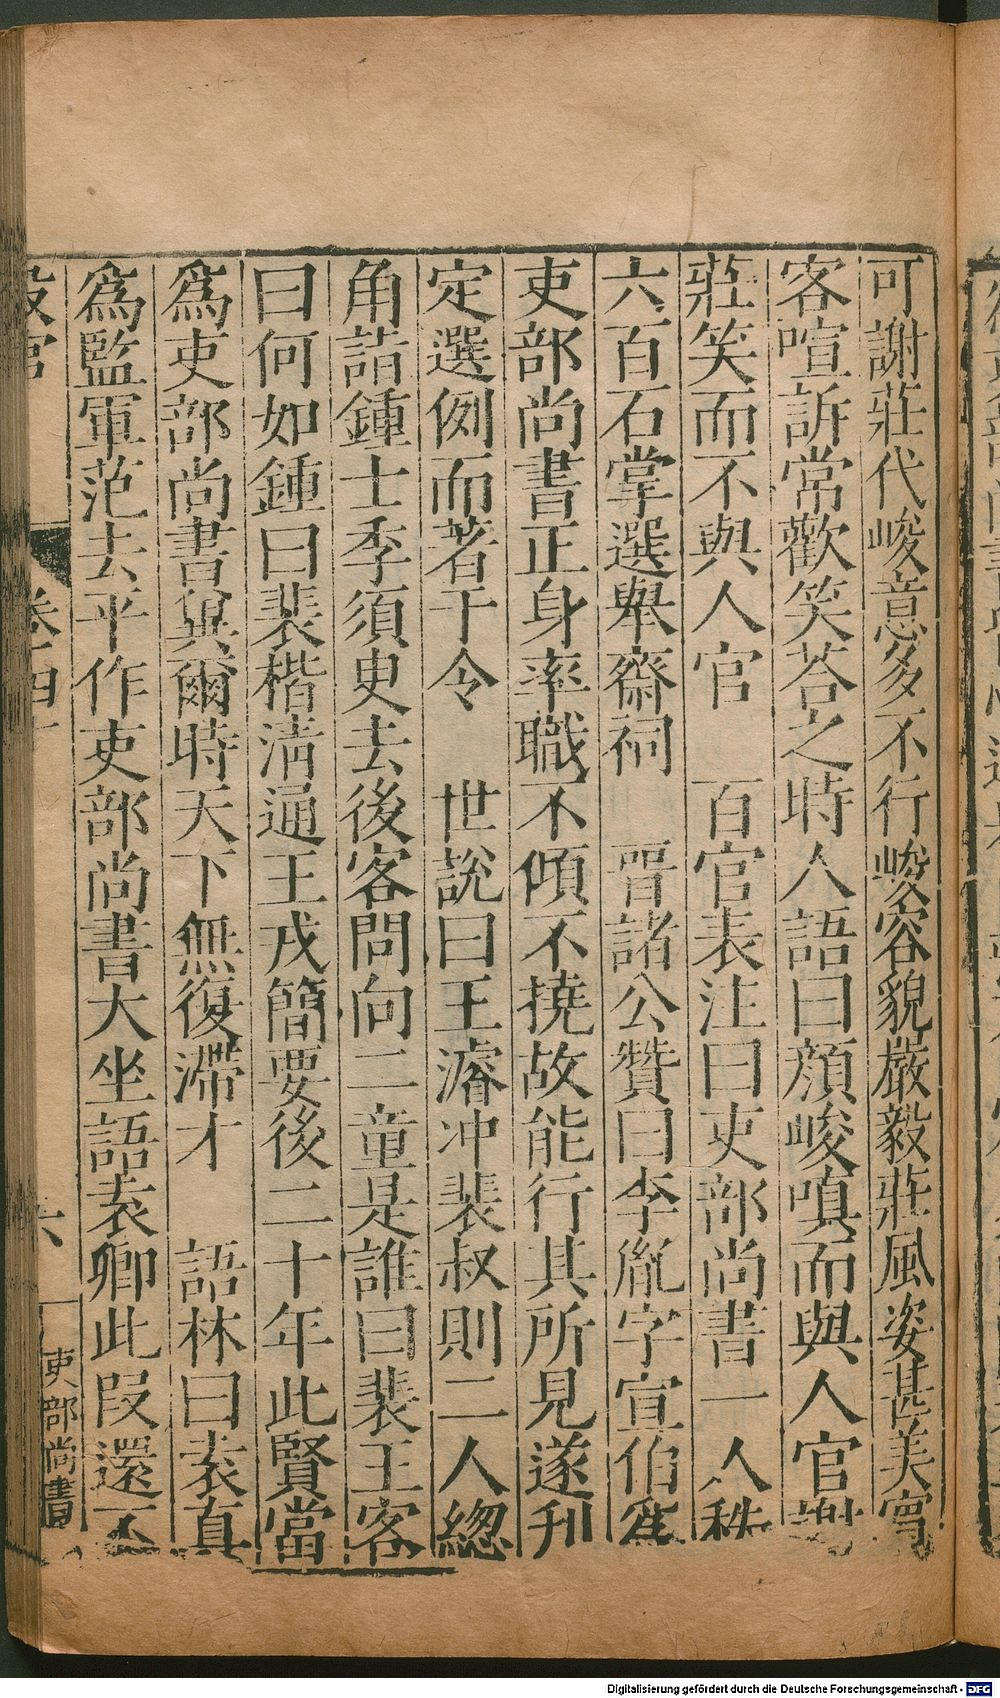 可謝莊代峻意多不行峻容貌嚴毅莊風姿甚美賓
客喧訴常歡笑荅之時人語曰顏峻嗔而與人官謝
莊笑而不與人官　百官表注曰吏部尚書一人秩
六百石掌選舉齋祠　晉諸公贊曰李胤字宣伯爲
吏部尚書正身率職不傾不撓故能行其所見遂刋
定選例而著于令　世說曰王濬冲裴叔則二人緫
角詣鍾士季須臾去後客問向二童是誰曰裴王客
曰何如鍾曰裴楷淸通王戎簡要後二十年此賢當
爲吏部尚書兾爾時天下無復滯才　語林曰袁真
爲監軍范去平作吏部尚書大坐語袁卿此叚還不
吏部尚書
六
Digitalisierung gefördert durch die Deutsche Forschungsgemeinschaft - DFG